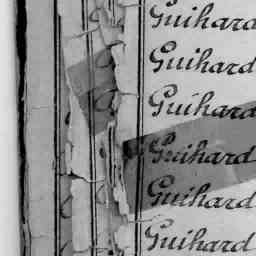 Guihard
Guihard
Guihard
Guihard
Guihard
Guihard